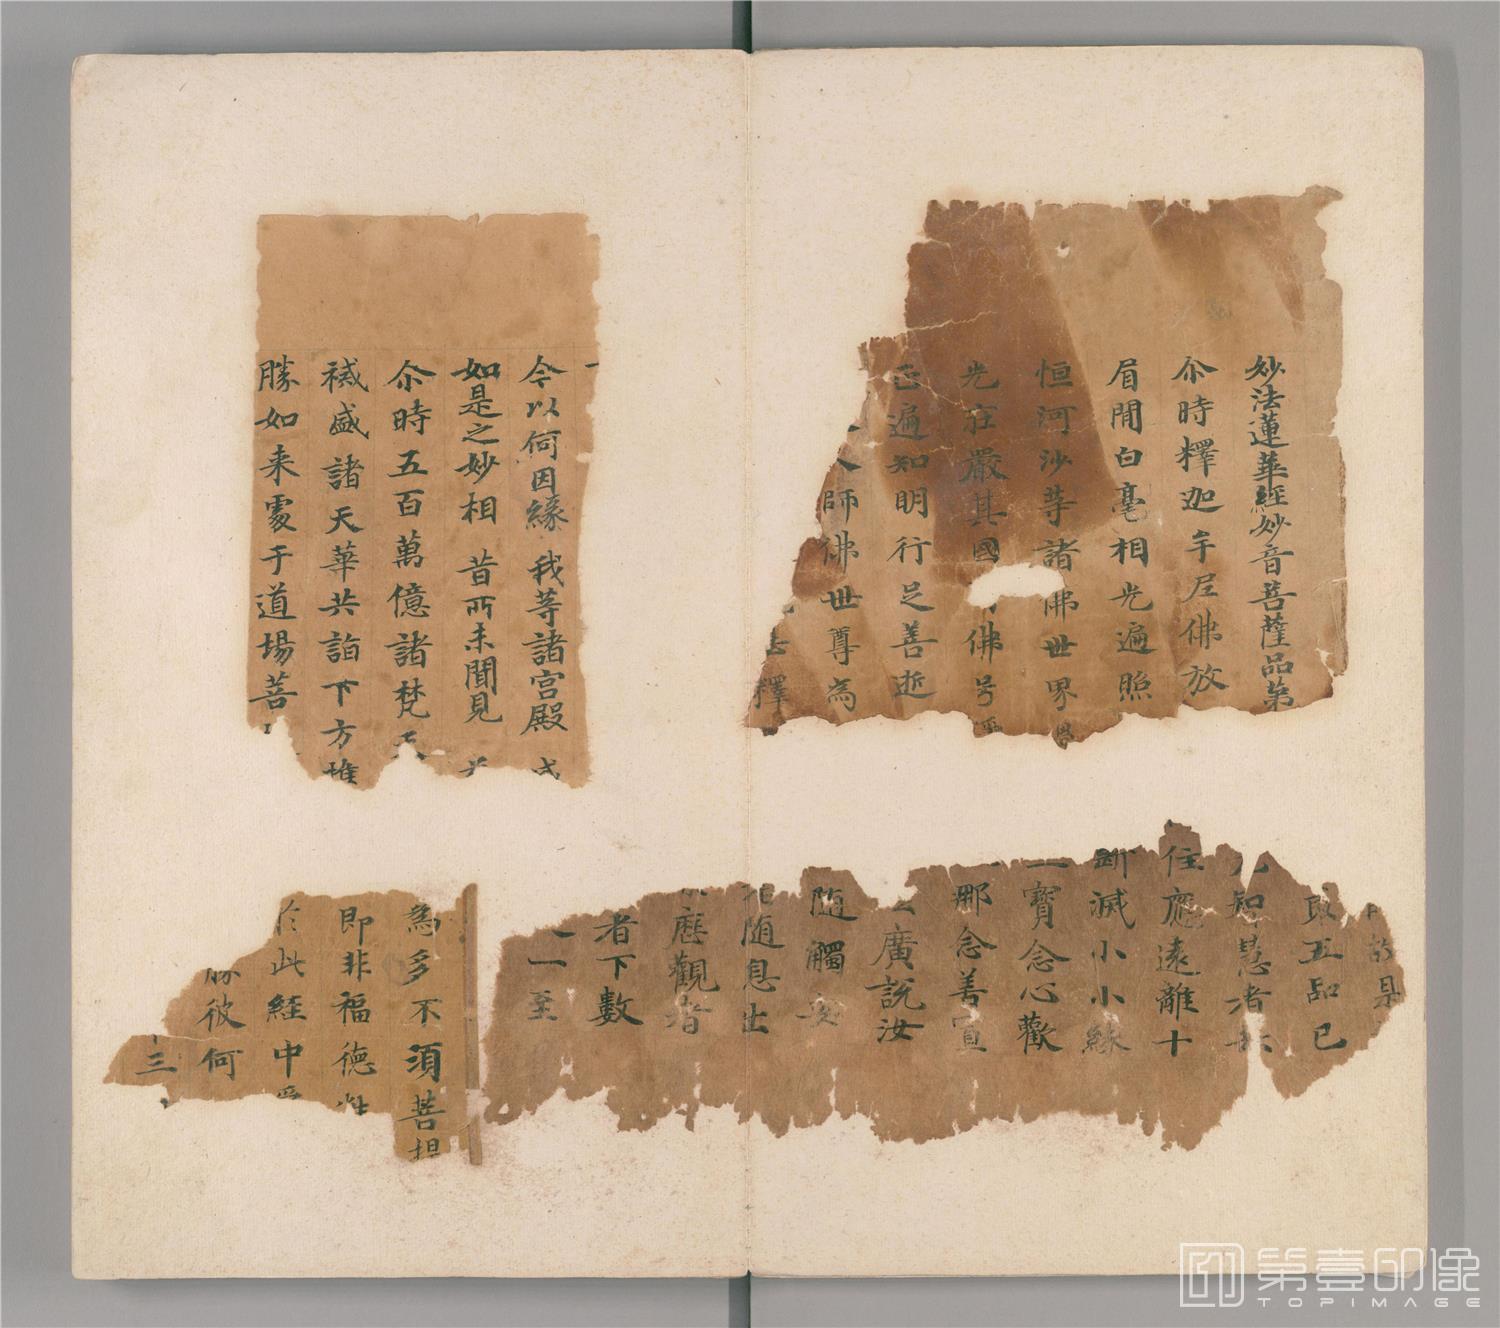 妙法蓮華経妙音菩薩品第
尒時釋迦牟尼佛放
眉閒白毫相光遍照
恒河沙等諸佛世界
光莊嚴其國 佛号
正遍知明行足善逝
人師佛世尊為
釋
今以何因緣 我等諸宮殿
如是之妙相 昔所未聞見
尒時五百萬億諸梵天
裓盛諸天華共詣下方推
勝如来處于道場菩
故是
五品已
智慧者
住應遠離十
斷滅小小緣
一寶念心歡
那念善宣
廣說汝
随觸安
随息出
歷觀者
者下數
一至
為多不須菩提
即非福德性
於此経中受
勝彼何
三
第壹印像
TOPIMAGE